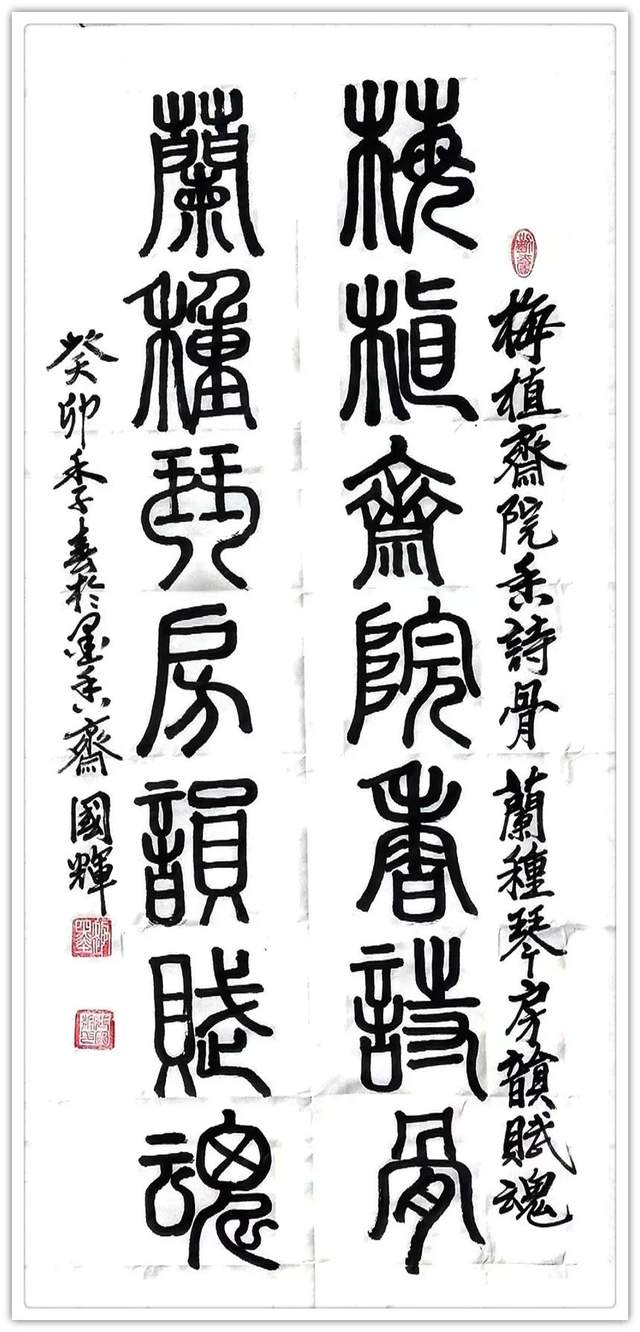 梅植齋院香詩骨 蘭種琴房韻賦魂
梅植齋院香詩骨
蘭種琴房韻賦魂
癸卯季春於墨香齋 國輝